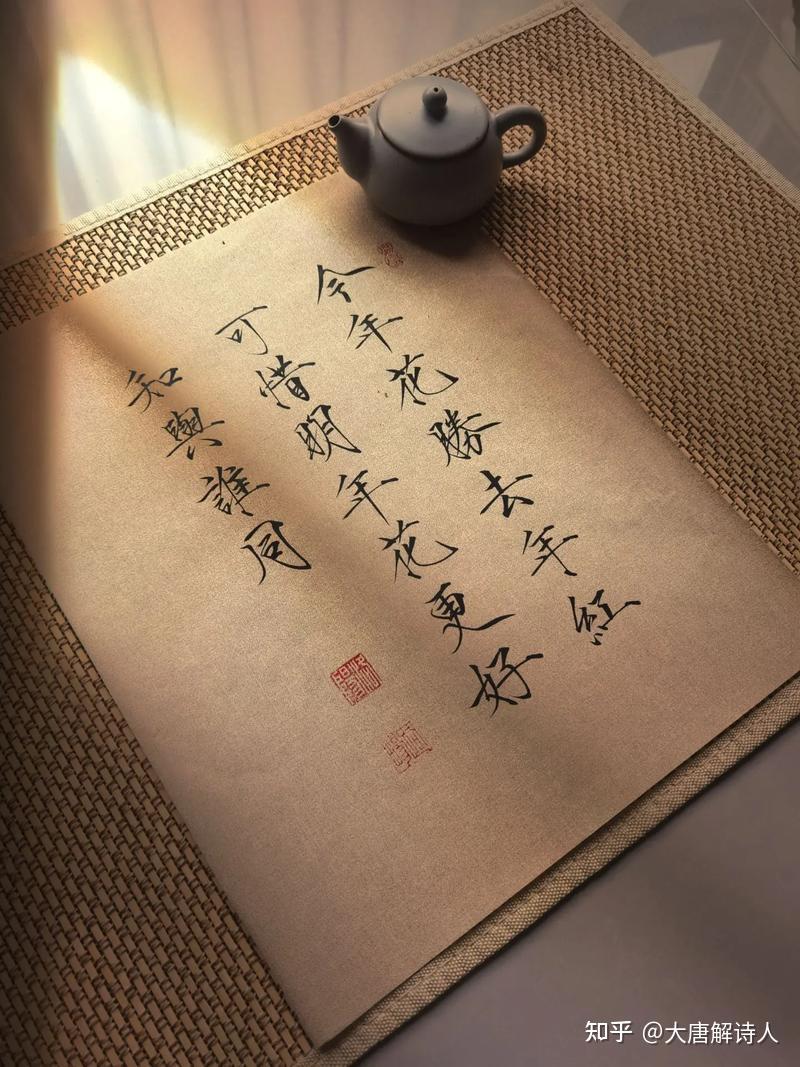 今年花勝去年紅
可惜明年花更好
知與誰同
知乎 @大唐解诗人